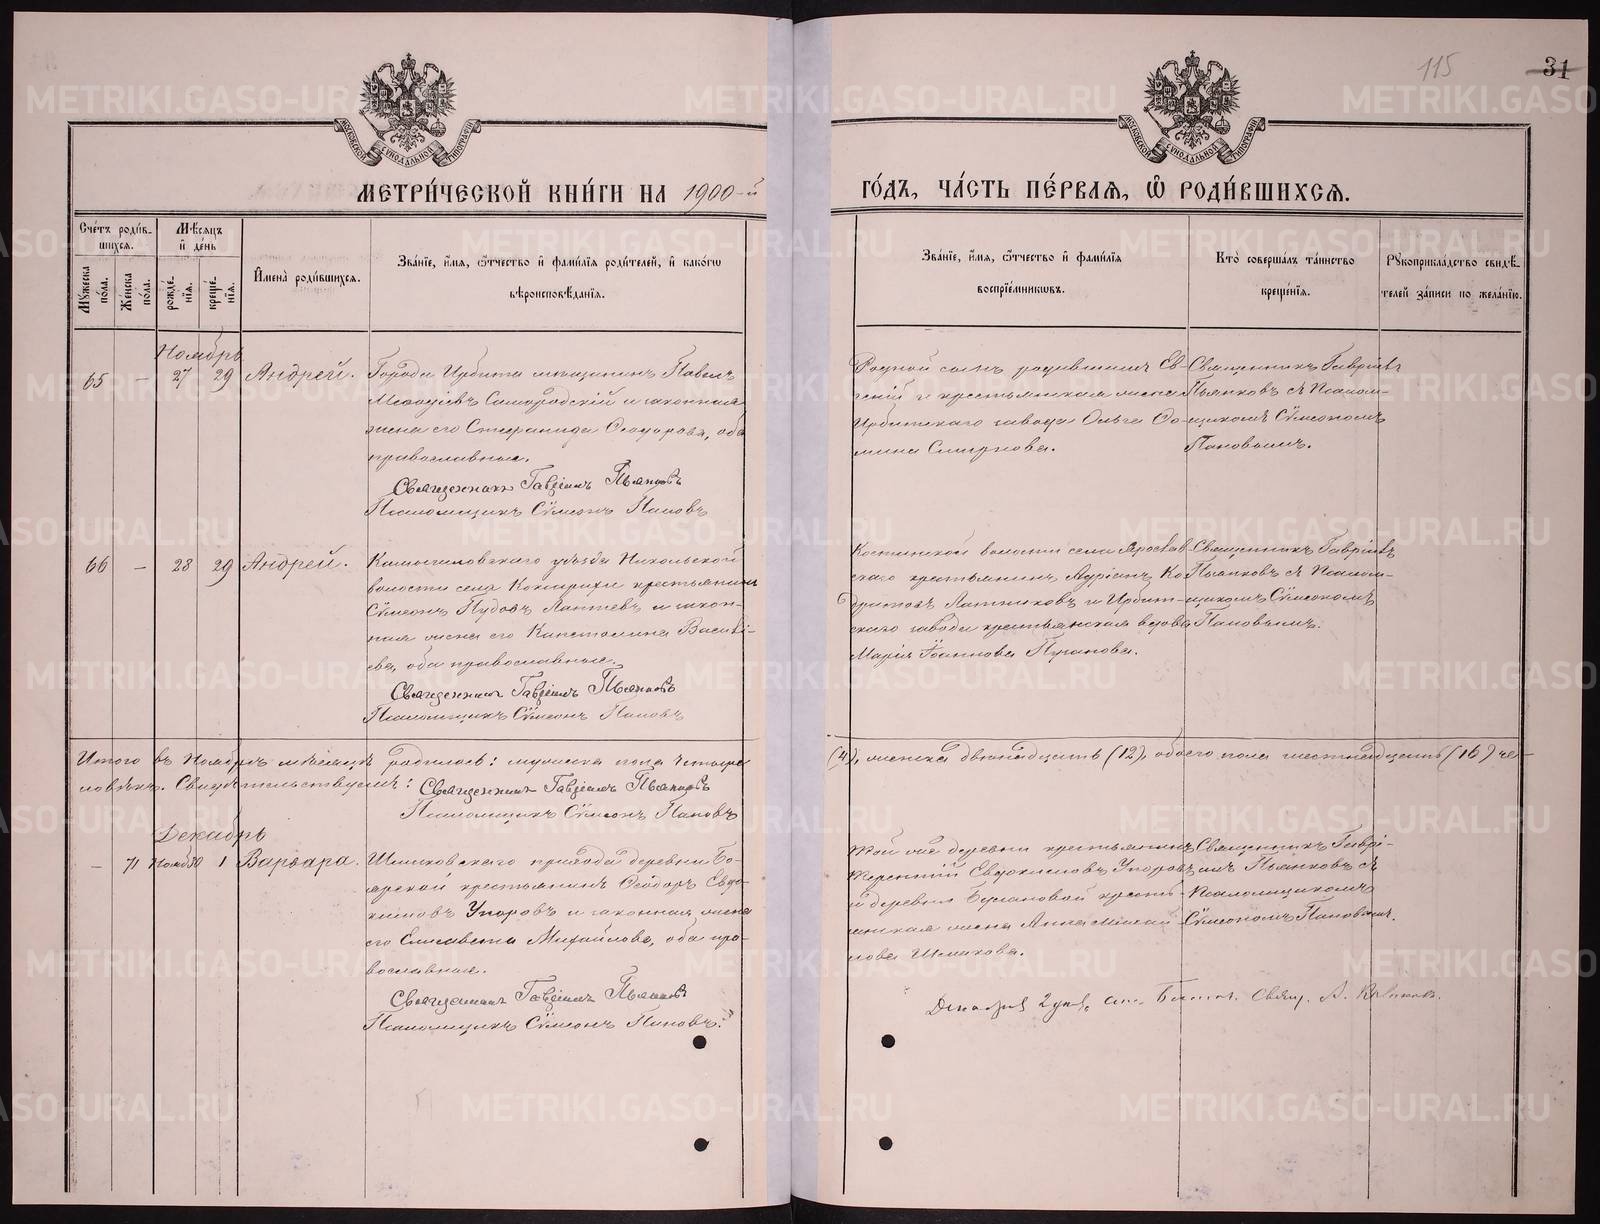 115
31
МОСКОВСКОЙ СѴНОДАЛЬНОЙ ТИПОГРАФІИ
МОСКОВСКОЙ СѴНОДАЛЬНОЙ ТИПОГРАФІИ
МЕТРИ́ЧЕСКОЙ КНИ́ГИ НА 1900-й
ГО́ДЪ, ЧА́СТЬ ПЕ́РВАЯ, Ѽ РОДИ́ВШИХСЯ.
Сче́тъ роди́в-
шихся.
Мѣ́сяцъ
и҆ де́нь
Мꙋ́жеска
по́ла.
Же́нска
по́ла.
рожде́-
нїя.
креще́-
нїя.
И҆мена̀ роди́вшихся.
Зва́нїе, и҆́мя, ѻ҆́тчество и҆ фамилїя роди́телей, и҆ како́гѡ
вѣроисповѣ́данїя.
Зва́нїе, и҆́мя, ѻ҆́тчество и҆ фами́лїя
воспрїе́мникѡвъ.
Кто̀ соверша́лъ та́инство
креще́нїя.
Рꙋкоприкла́дство свидѣ́-
телей за́писи по жела́нїю.
Ноябрь
65 — 27 29 Андрей.
Города Ирбита мѣщанинъ Павелъ
Самородскій и законная
жена его Стефанида Ѳеодорова, оба
православные.
Священникъ Гавріилъ Пьянковъ
Псаломщикъ Сѷмеонъ Поповъ
Родной сынъ родившихъ Ев-
геній и крестьянская жена
Ирбитскаго завода Ольга Ѳо-
мина Смирнова.
Священникъ Гавріилъ
Пьянковъ съ Псалом-
щикомъ Сѷмеономъ
Поповымъ.
66 — 28 29 Андрей.
Камышловскаго уѣзда Никольской
волости села крестьянинъ
Сѷмеонъ Лаптевъ и закон-
ная жена его Капитолина Василі-
ева, оба православные.
Священникъ Гавріилъ Пьянковъ
Псаломщикъ Сѷмеонъ Поповъ
Костинской волости села Ярослав
скаго крестьянинъ Адріанъ Ко
дратовъ Латниковъ и Ирбит-
скаго завода крестьянская вдова
Марія Іоаннова Пуганова.
Священникъ Гавріилъ
Пьянковъ съ Псалом-
щикомъ Сѷмеономъ
Поповымъ.
Итого въ Ноябрѣ мѣсяцѣ родилось: мужеска пола четыре (4), женска двѣнадцать (12), обоего пола шестнадцать (16) че-
ловѣкъ. Свидѣтельствуемъ: Священникъ Гавріилъ Пьянковъ
Псаломщикъ Сѷмеонъ Поповъ
Декабрь
— 71 Нояб 30 1 Варвара.
Шмаковскаго прихода деревни Бо-
ярской крестьянинъ Ѳеодоръ Евдо-
кимовъ Упоровъ и законная жена
его Елисавета Михайлова, оба пра-
вославные.
Священникъ Гавріилъ Пьянковъ
Псаломщикъ Сѷмеонъ Поповъ.
Той же деревни крестьянинъ
Терентій Евдокимовъ Упоровъ
и деревни Бузановой кресть-
янская жена Анна Михай-
лова Шмакова.
Священникъ Гаврі-
илъ Пьянковъ съ
Псаломщикомъ
Сѷмеономъ Поповымъ.
Декабря 2 дня Свящ. А.